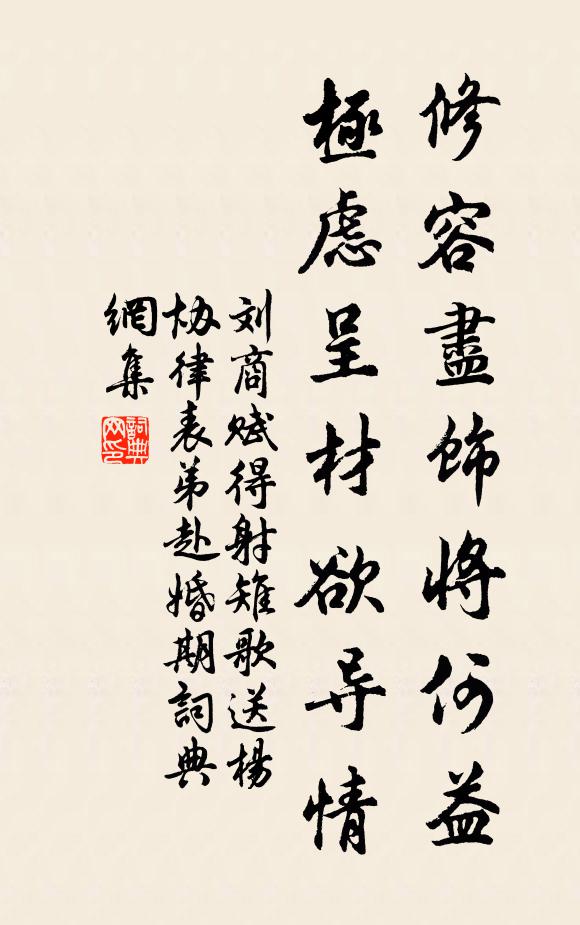 修容盡飾將何益
極慮呈材欲导情
刘商赋得射雉歌送楊
协律表弟赴婚期詞典
網集
詞典网印